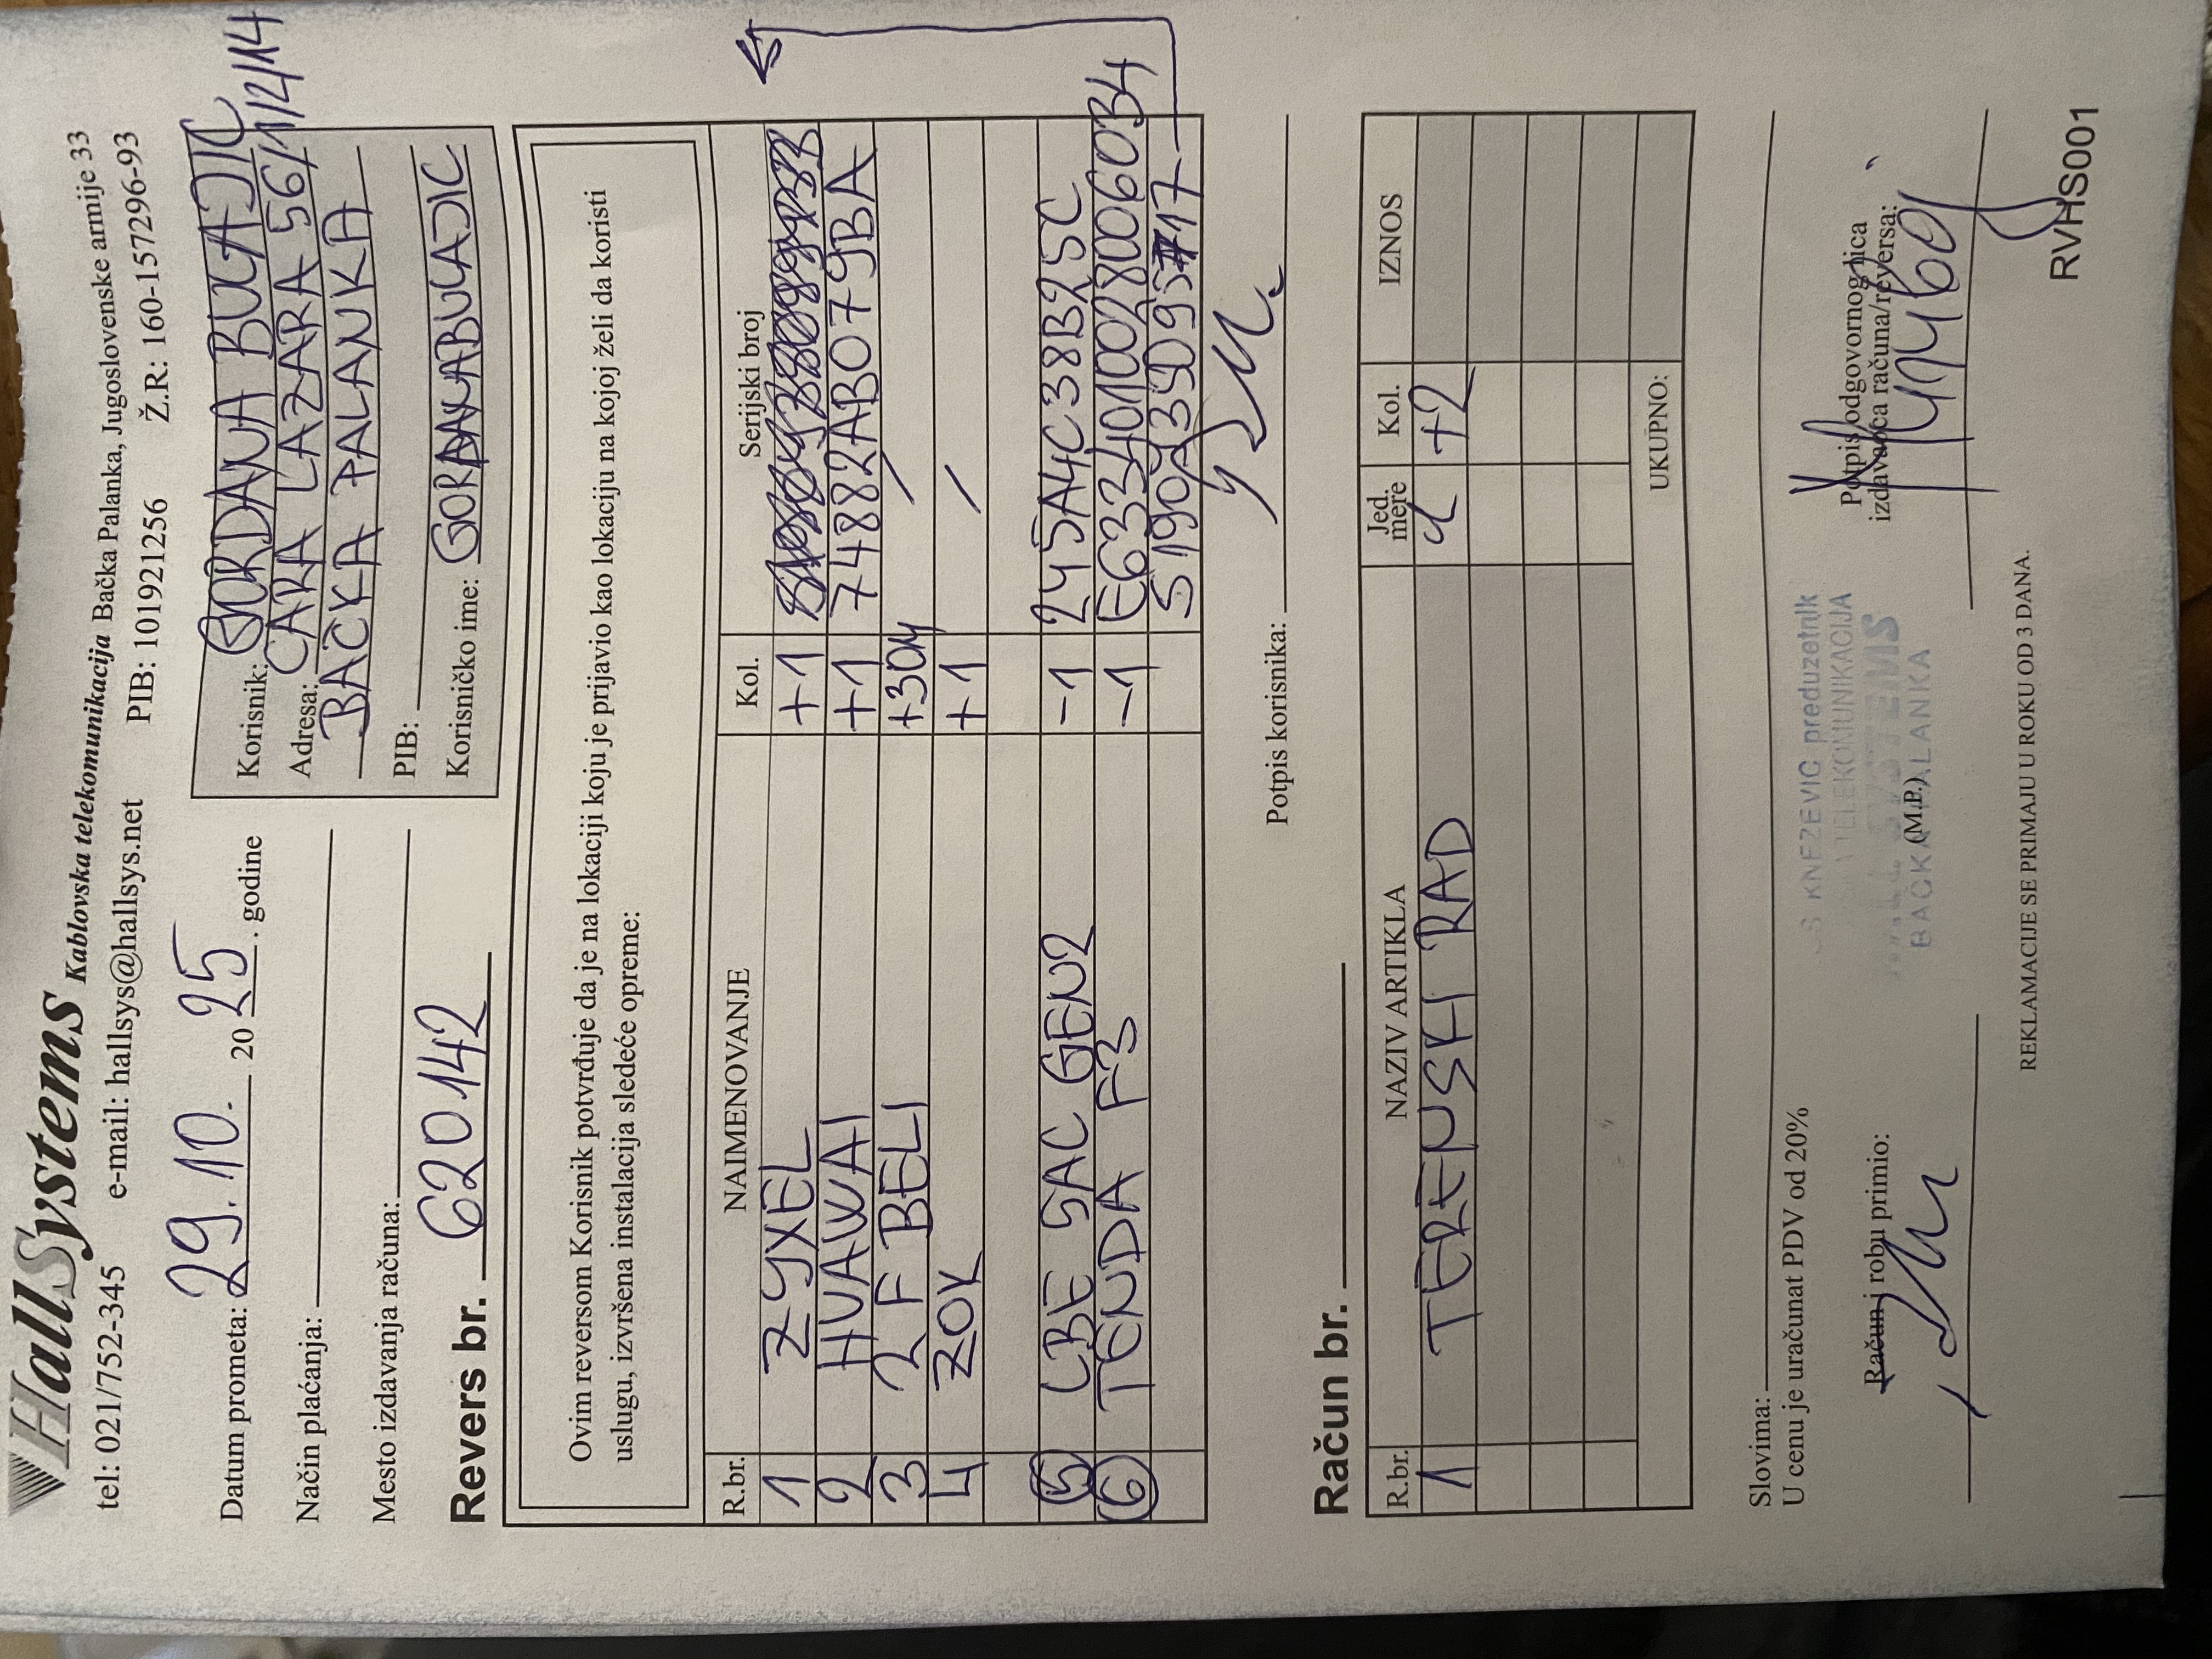 HallSystems Kablovska telekomunikacija Bačka Palanka, Jugoslovenske armije 33
tel: 021/752-345 e-mail: hallsys@hallsys.net PIB: 101921256 Ž.R: 160-157296-93
Datum prometa: 29.10. 2025. godine
Način plaćanja:
Mesto izdavanja računa:
Revers br. 620142
Korisnik: GORDANA BULAJIC
Adresa: CARA LAZARA 56/1/2/14
BAČKA PALANKA
PIB:
Korisničko ime: GORDANABULAJIC
Ovim reversom Korisnik potvrđuje da je na lokaciji koju je prijavio kao lokaciju na kojoj želi da koristi
uslugu, izvršena instalacija sledeće opreme:
R.br. NAIMENOVANJE Kol. Serijski broj
1 ZYXEL +1
2 HUAWAI +1 74882AB079BA
3 2 F BELI +30M /
4 ZOK +1 /
5 LBE 5AC GEN2 -1 245A4C38B25C
6 TENDA F3 -1 E6334010028006034
S190Y35D95717
Potpis korisnika:
Račun br.
R.br. NAZIV ARTIKLA Jed. mere Kol. IZNOS
1 TERENSKI RAD +2
UKUPNO:
Slovima:
U cenu je uračunat PDV od 20%
Račun i robu primio:
KNEZEVIC preduzetnik
TELEKOMUNIKACIJA
SYSTEMS
BACKA PALANKA
(M.P.)
Potpis odgovornog lica
izdavaoca računa/reversa:
REKLAMACIJE SE PRIMAJU U ROKU OD 3 DANA.
RVHS001